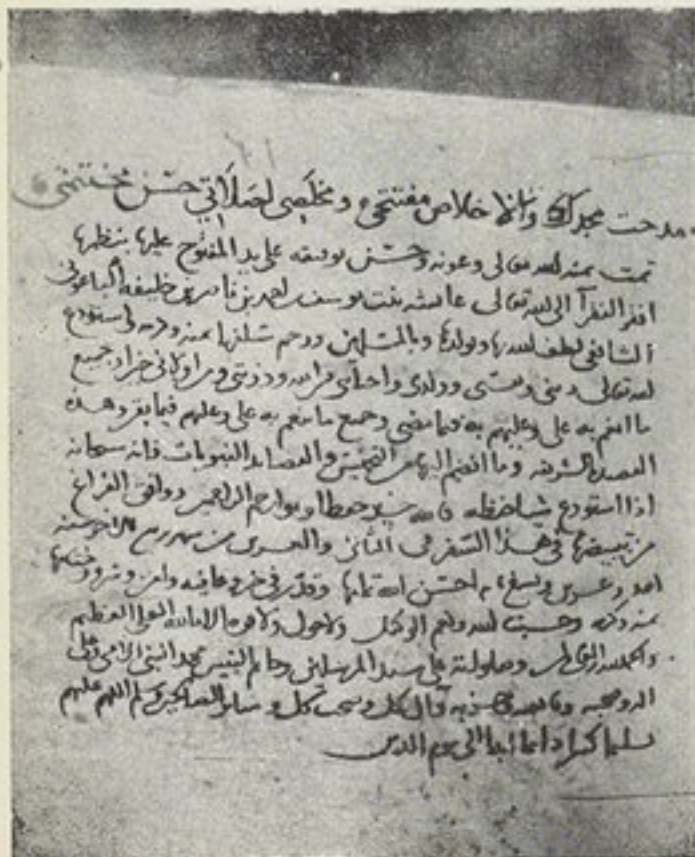 مدحت مجدك والاخلاص مفتتحي ومخلصي لصلاتي حسن مختتمي
تمت بمنه لله تعالى وعونه وحسن توفيقه على يد المفتوح عليها بنظمها
افقر الفقرآ الى لله تعالى عائشه بنت يوسف بن احمد بن ناصر بن خليفه الباعوني
الشافعي لطف لله بها وبولدها وبالمسلمين ورحم سلفها بمنه وكرمه استودع
لله تعالى ديني ونفسي وولدي واحبابي وذريتي جميع
ما انعم به علي وعليهم به فيما مضى وجميع ما ينعم به علي وعليهم فيما بقي وهذه
القصيده الشريفه وما انضم اليها من التخميس والقصايد النبويات فانه سبحانه
اذا استودع شيا حفظه فالله خير حفظا وهو ارحم الراحمين ووافق الفراغ
من تبييضها في هذا السفر في الثاني والعشرين من شهر ربيع الاخر سنه
احدى وعشرين وتسع مايه احسن الله تمامها في خير وعافيه وامن
بمنه وكرمه وحسبنا لله ونعم الوكيل ولا حول ولا قوه الا بالله العلي العظيم
والحمد لله رب وصلواته على سيد المرسلين وخاتم النبيين محمد النبي الامي وعلى
اله وصحبه وآل كل وصحب كل وسائر الصالحين وسلم اللهم عليهم
تسليما كثيرا دائما ابدا الى يوم الدين